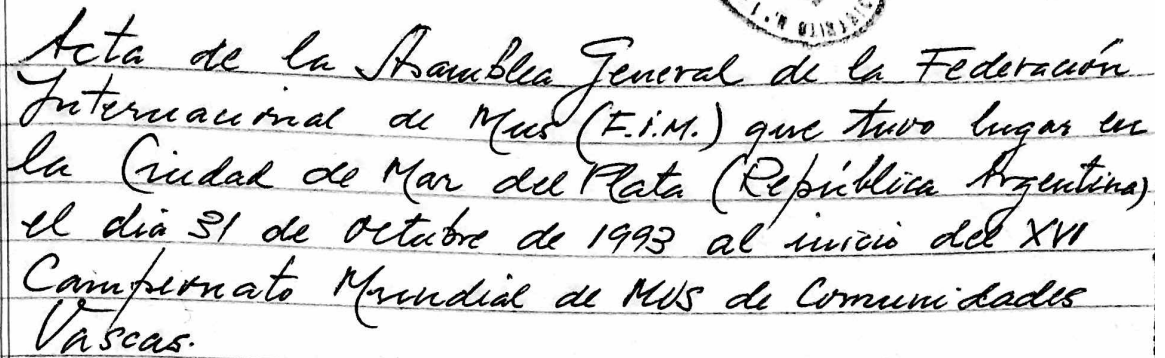 DISTRITO N.º 1
Acta de la Asamblea General de la Federación
Internacional de Mus (F.i.M.) que tuvo lugar en
la Ciudad de Mar del Plata (República Argentina)
el dia 31 de octubre de 1993 al inicio del XVI
Campeonato Mundial de MUS de Comunidades
Vascas.